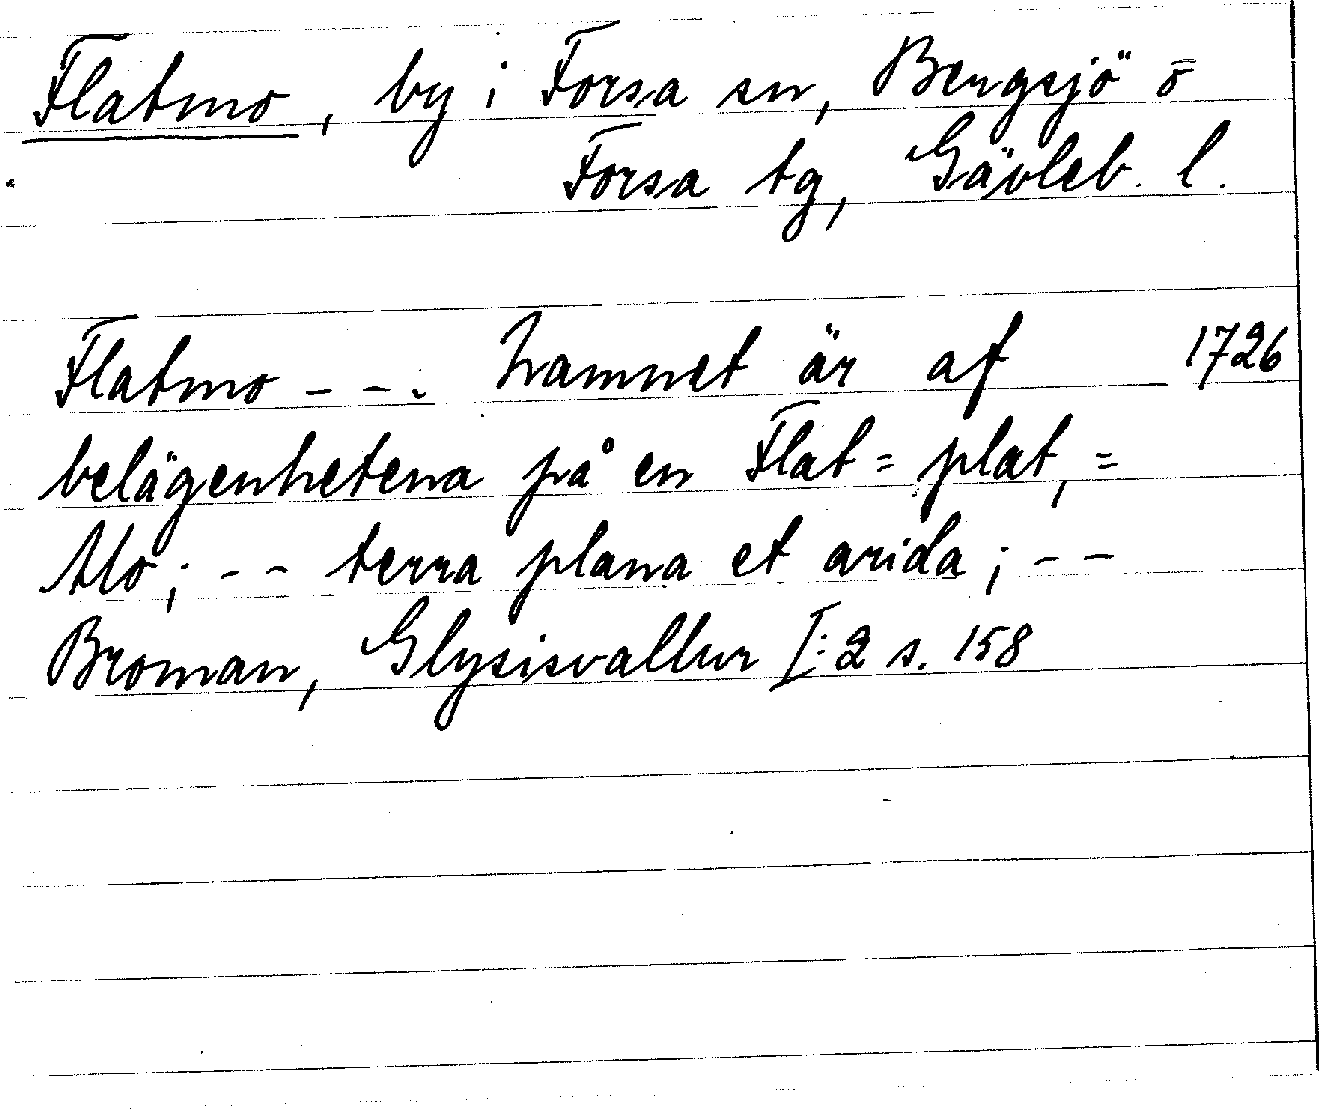 Flatmo, by i Forsa sn, Bergsjö o
Forsa tg, Gävleb. l.
Flatmo - - - Namnet är af 1726
belägenhetena på en Flat = plat, =
Mo; - - terra plana et arida; - -
Broman, Glysisvallur I:2 s. 158